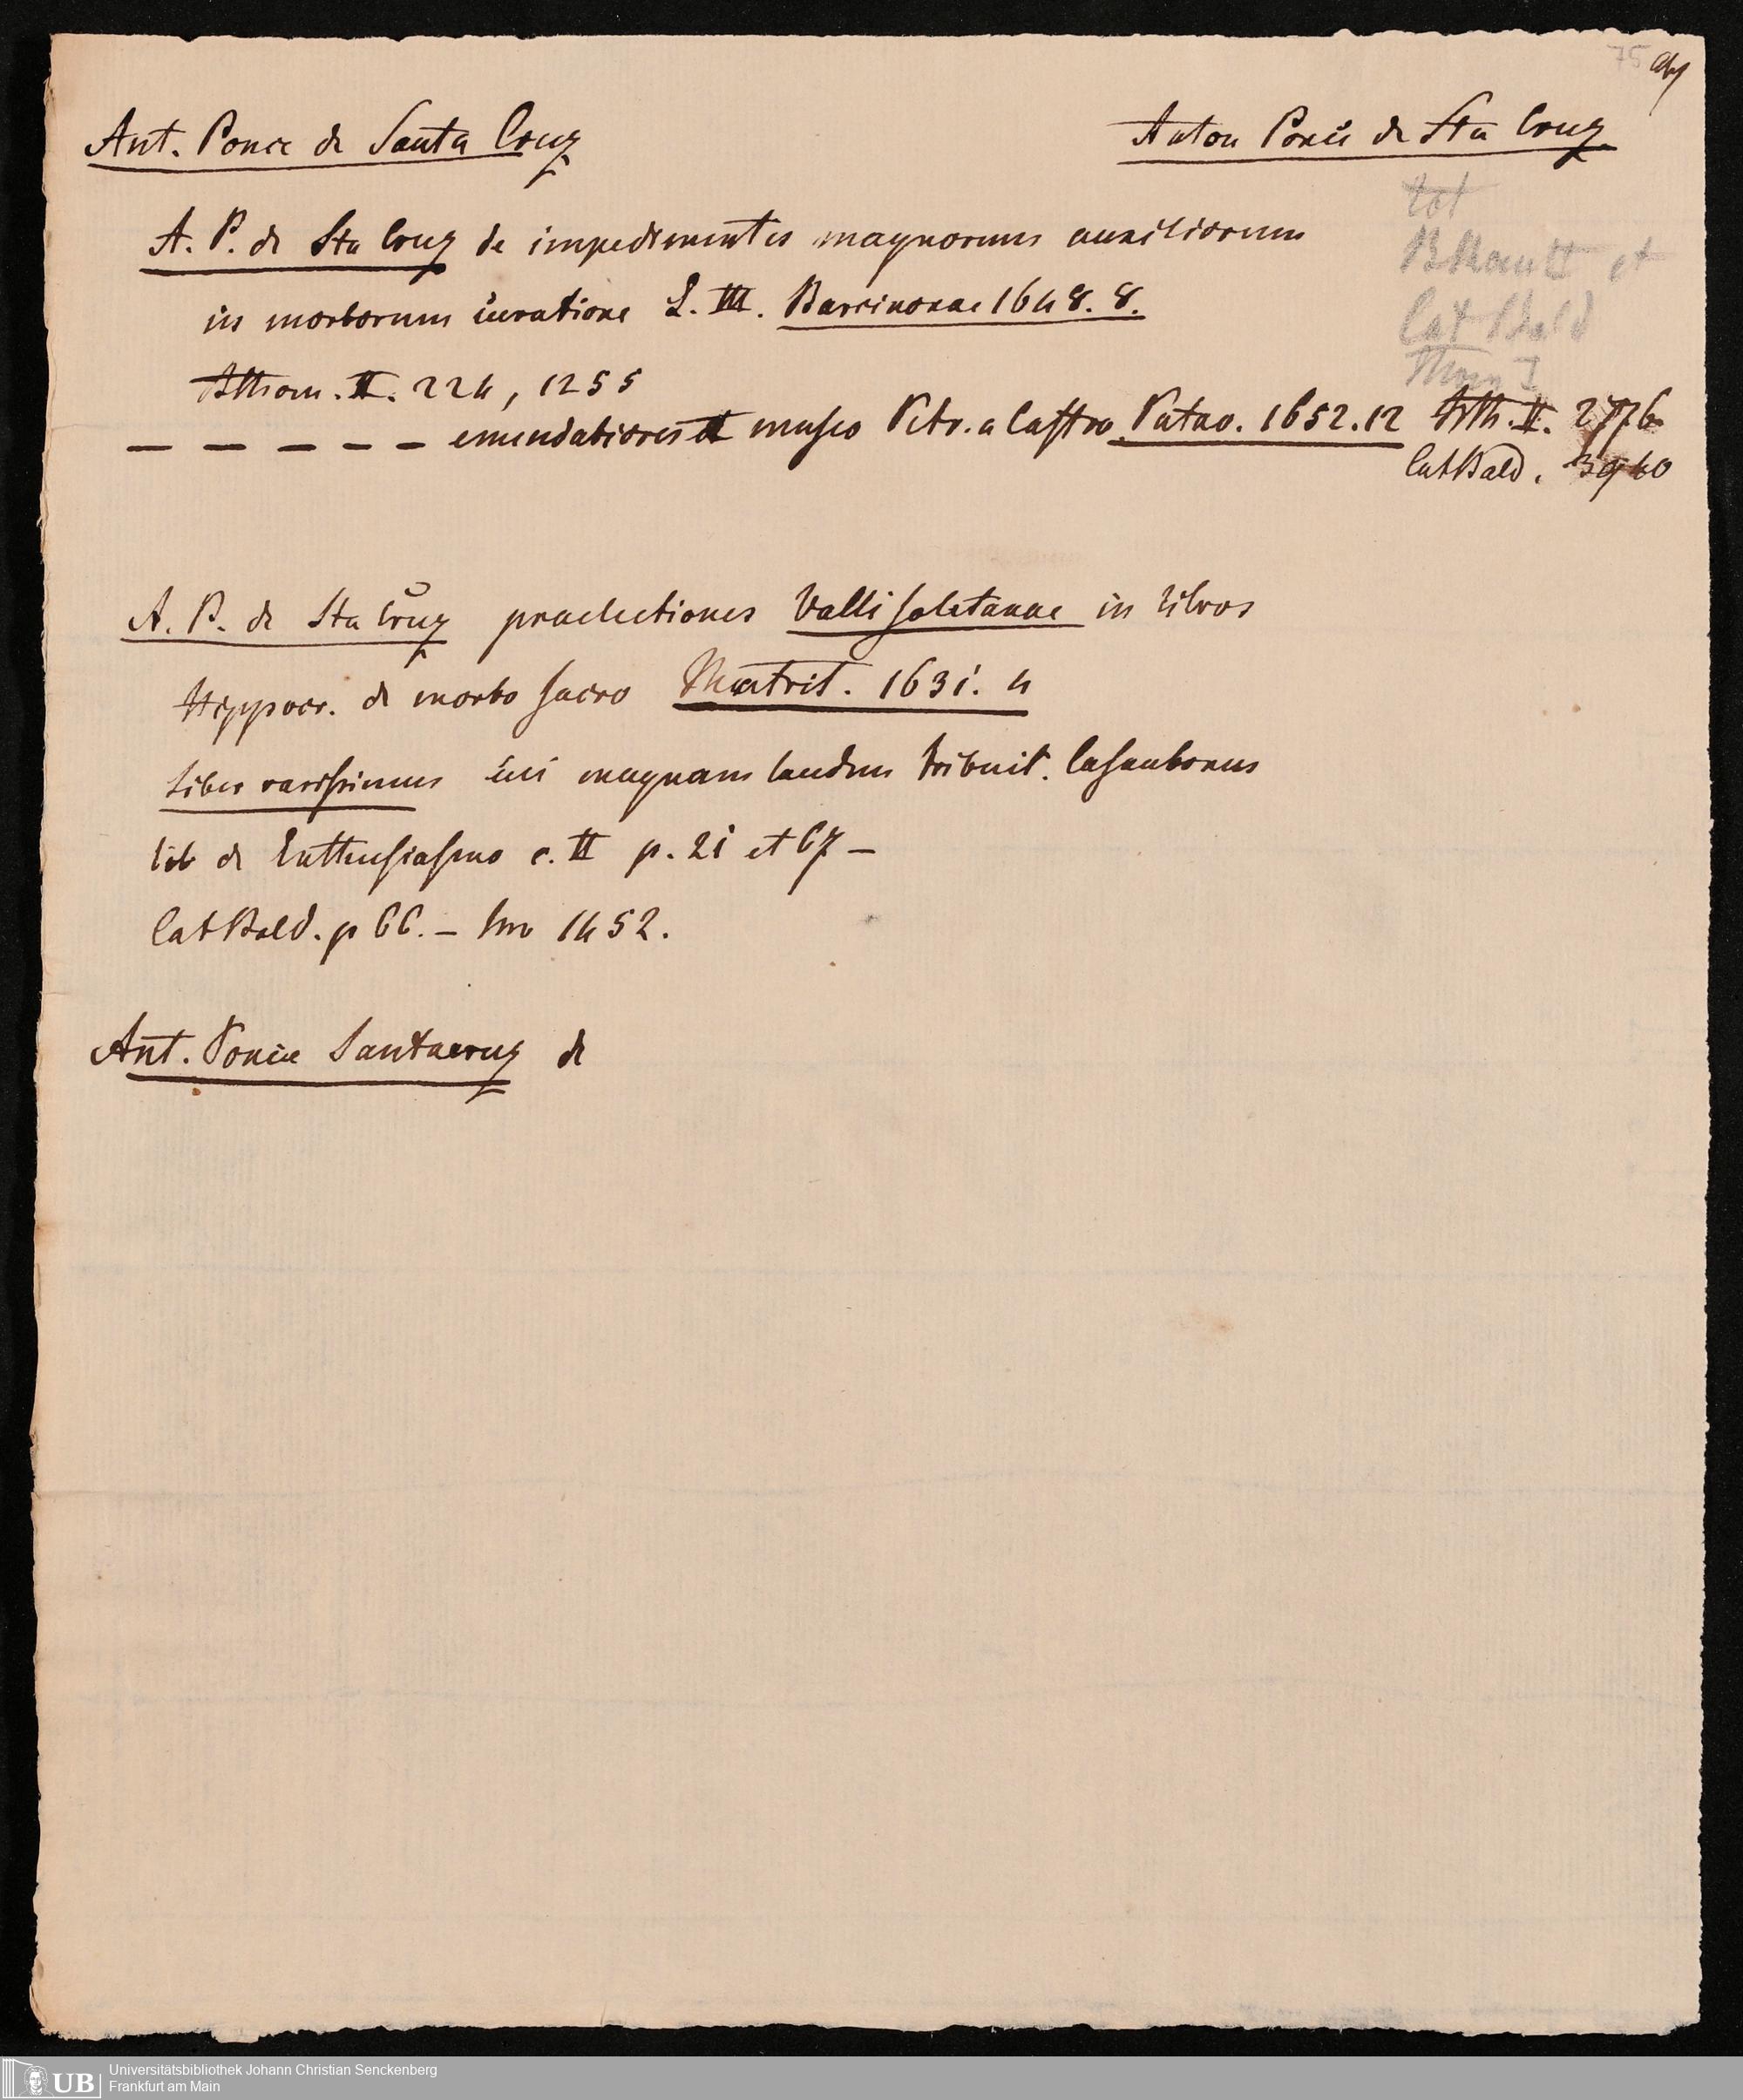 75 abs
Ant. Ponce de Santa Cruz
Anton Ponce de Sta Cruz
tot
BThom II et
Cat Bald
Thom I
A. P. de Sta Cruz de impedimentis magnorum auxiliorum
in morborum curatione L. III. Barcinonae 1648. 8.
BThom. II. 224, 1255
— — — — — emendatiores et museo Petr. a Castro Patav. 1652. 12 BTh. II. 2776
Cat Bald. 3940
A. P. de Sta Cruz praelectiones Vallisoletanae in libros
Hippocr. de morbo sacro Matrit. 1631. 4
Liber rarissimus cui magnam laudem tribuit. Casaubonus
lib de Enthusiasmo c. II p. 21 et 67 —
Cat Bald. p 66. — No 1452.
Ant. Ponce Santacruz de
UB Universitätsbibliothek Johann Christian Senckenberg
Frankfurt am Main